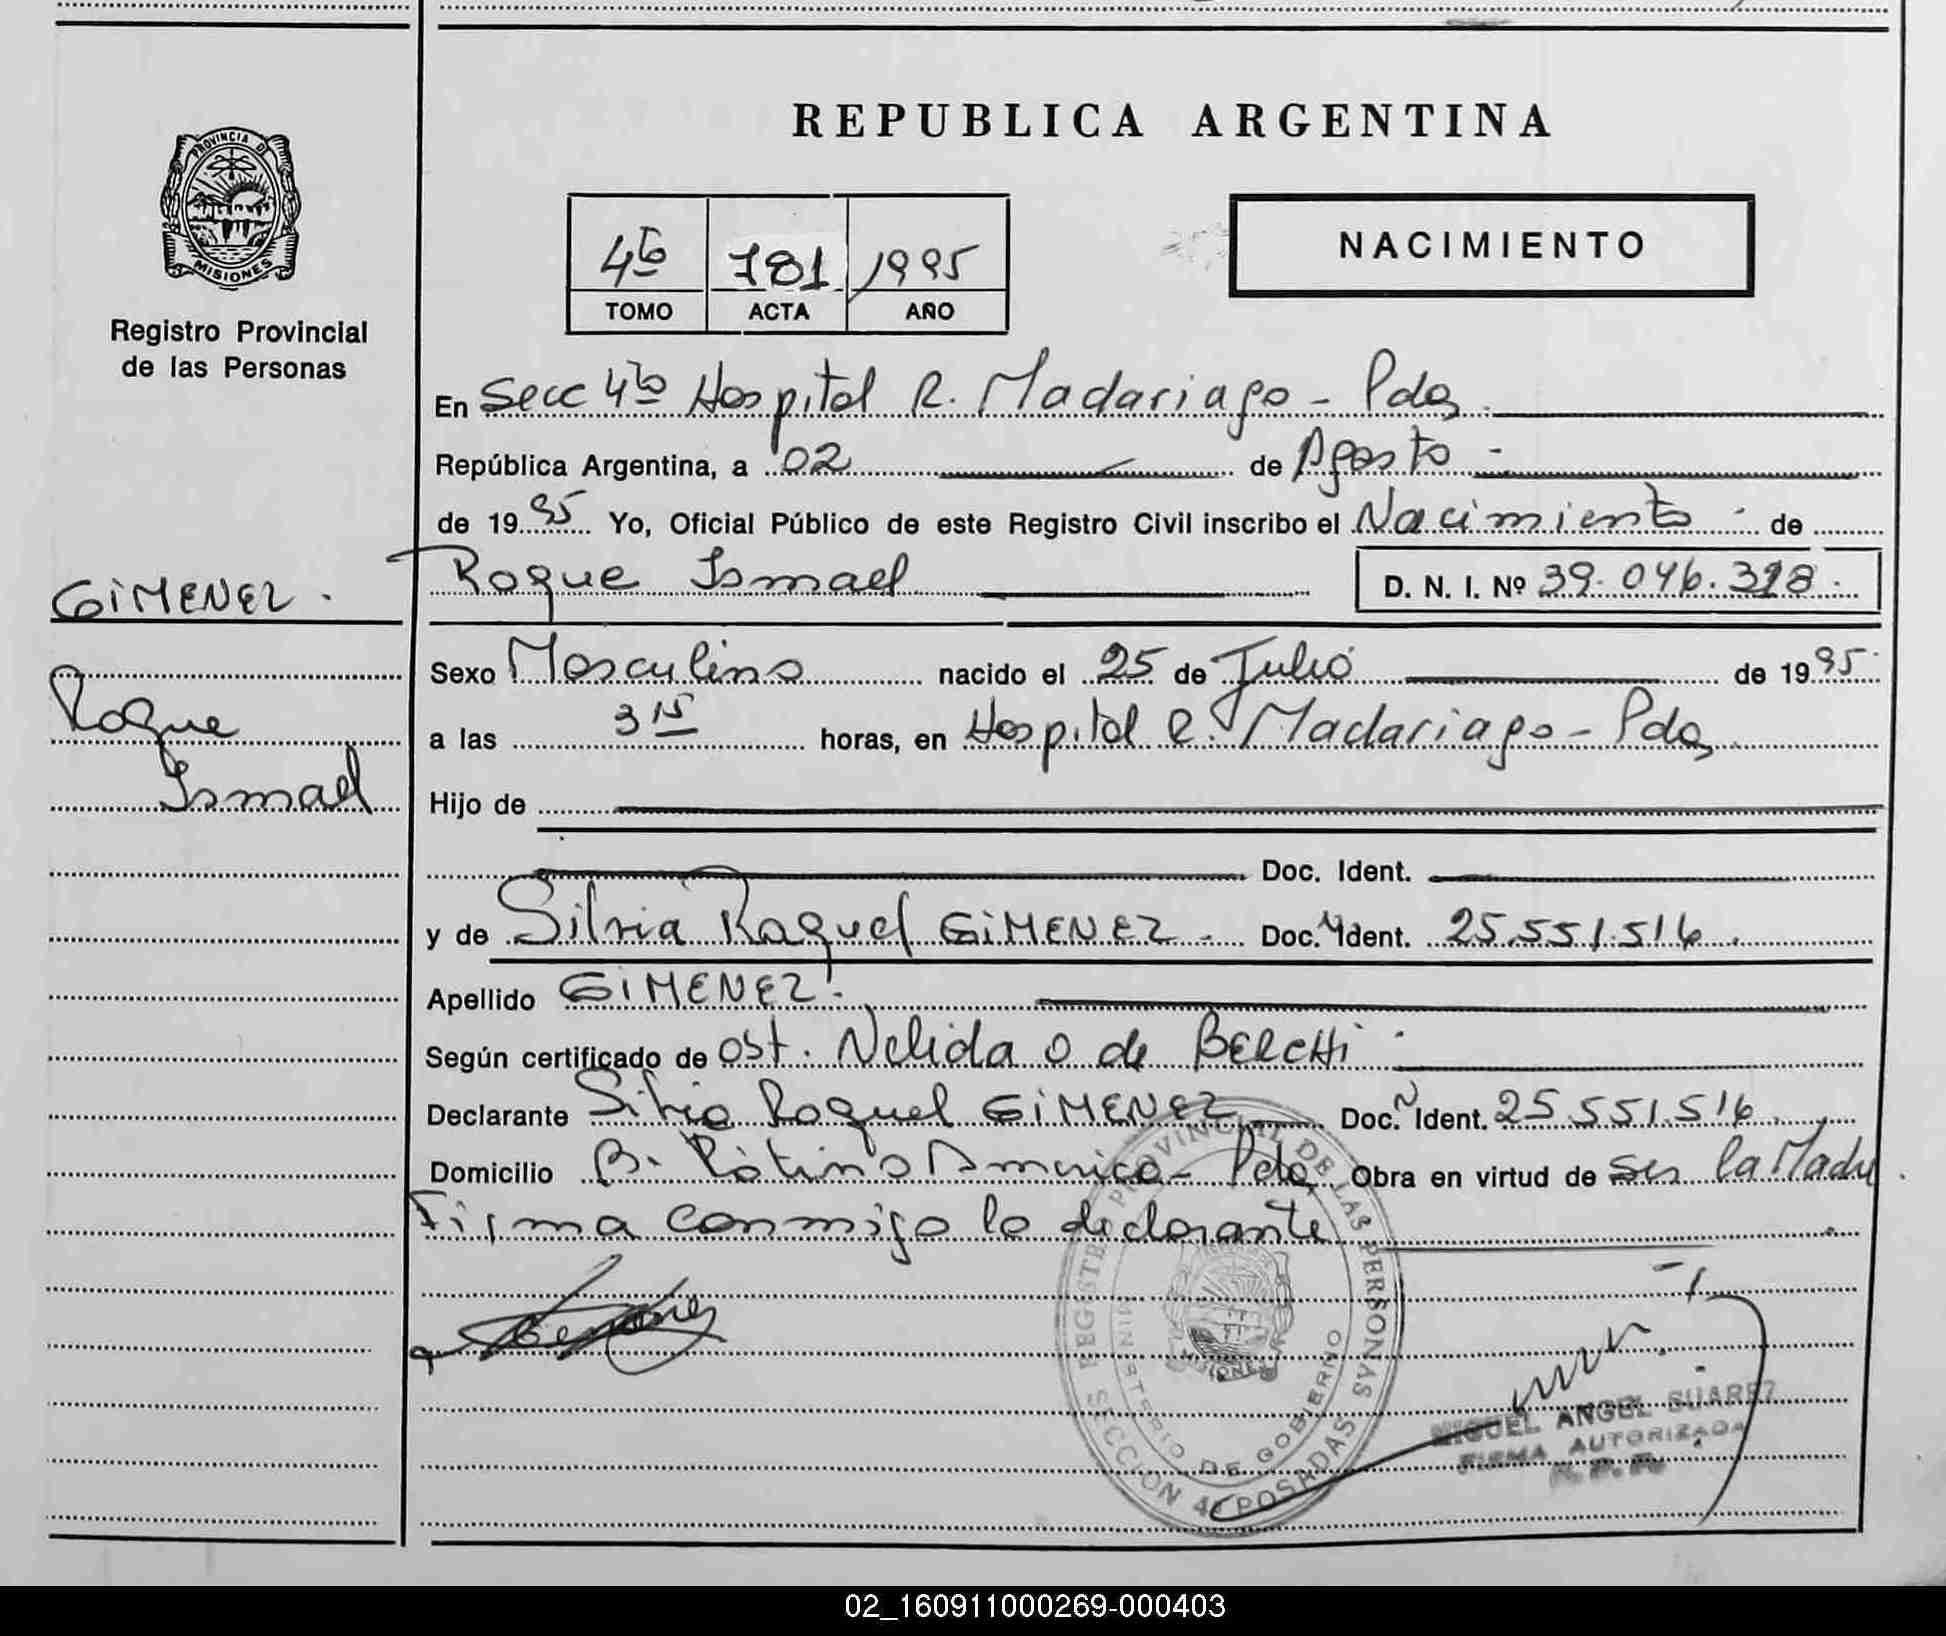 REPUBLICA ARGENTINA
PROVINCIA D
MISIONES
Registro Provincial
de las Personas
4to 781 1995
TOMO ACTA AÑO
NACIMIENTO
En Secc 4to Hospital R. Madariaga - Pdas
República Argentina, a 02 de Agosto
de 1995 Yo, Oficial Público de este Registro Civil inscribo el Nacimiento de
Roque Ismael D. N. I. Nº 39.046.328
GIMENEZ
Roque
Ismael
Sexo Masculino nacido el 25 de Julio de 1995
a las 3 15 horas, en Hospital R. Madariaga - Pdas
Hijo de
Doc. Ident.
y de Silvia Raquel GIMENEZ - Doc. Ident. 25.551.516
Apellido GIMENEZ
Según certificado de Ost. Nelida O de BERCHI
Declarante Silvia Raquel GIMENEZ Doc. Ident. 25.551.516
Domicilio B. Latino America - Pdas Obra en virtud de ser la Madre
Firma conmigo la declarante
REGISTRO PROVINCIAL DE LAS PERSONAS
MINISTERIO DE GOBIERNO
MISIONES
SECCION 4a POSADAS
MIGUEL ANGEL SUAREZ
FIRMA AUTORIZADA
R. P. P.
02_160911000269-000403